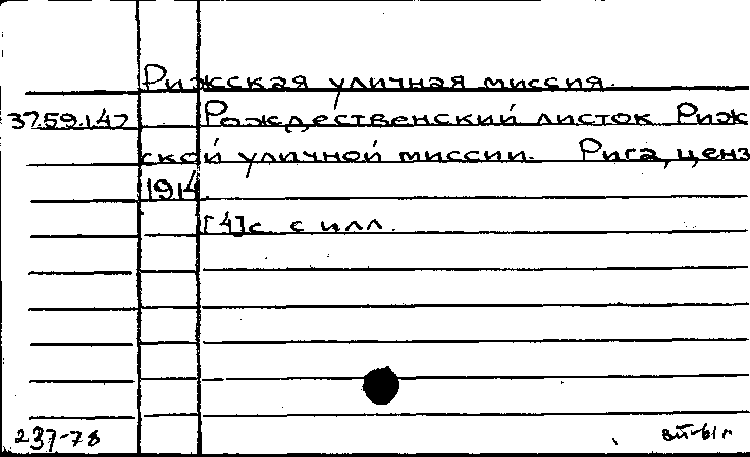 Рижская уличная миссия.
37.59.147 Рождественский листок Риж
ской уличной миссии. Рига, ценз
1914
[4]с. с илл.
237-78